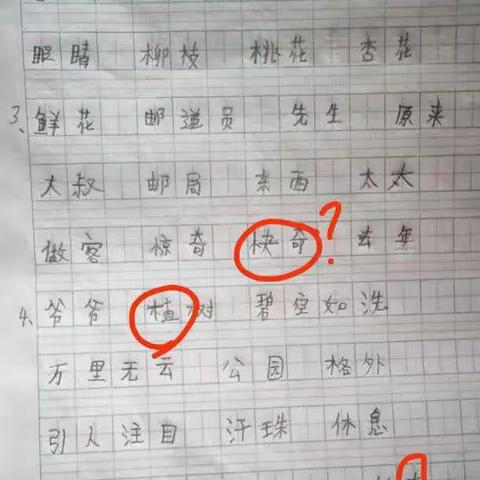 眼睛 柳枝 桃花 杏花
3、鲜花 邮递员 先生 原来
大叔 邮局 东西 太太
做客 惊奇 快奇 去年
?
4、爷爷 植树 碧空如洗
万里无云 公园 格外
引人注目 汗珠 休息